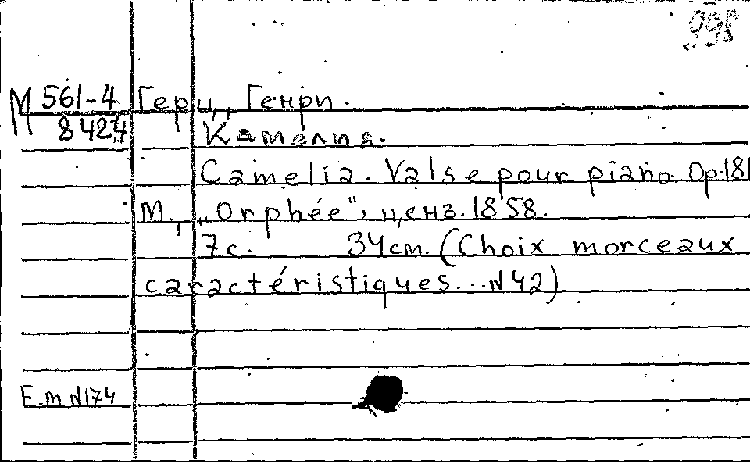 998
М 561-4 Герц, Генри.
8424 Камелия.
Camelia. Valse pour piano Op.181
М., „Orphée", ценз. 1858.
7 с. 34 см. (Choix morceaux
caractéristiques... N 42)
Е.т N174